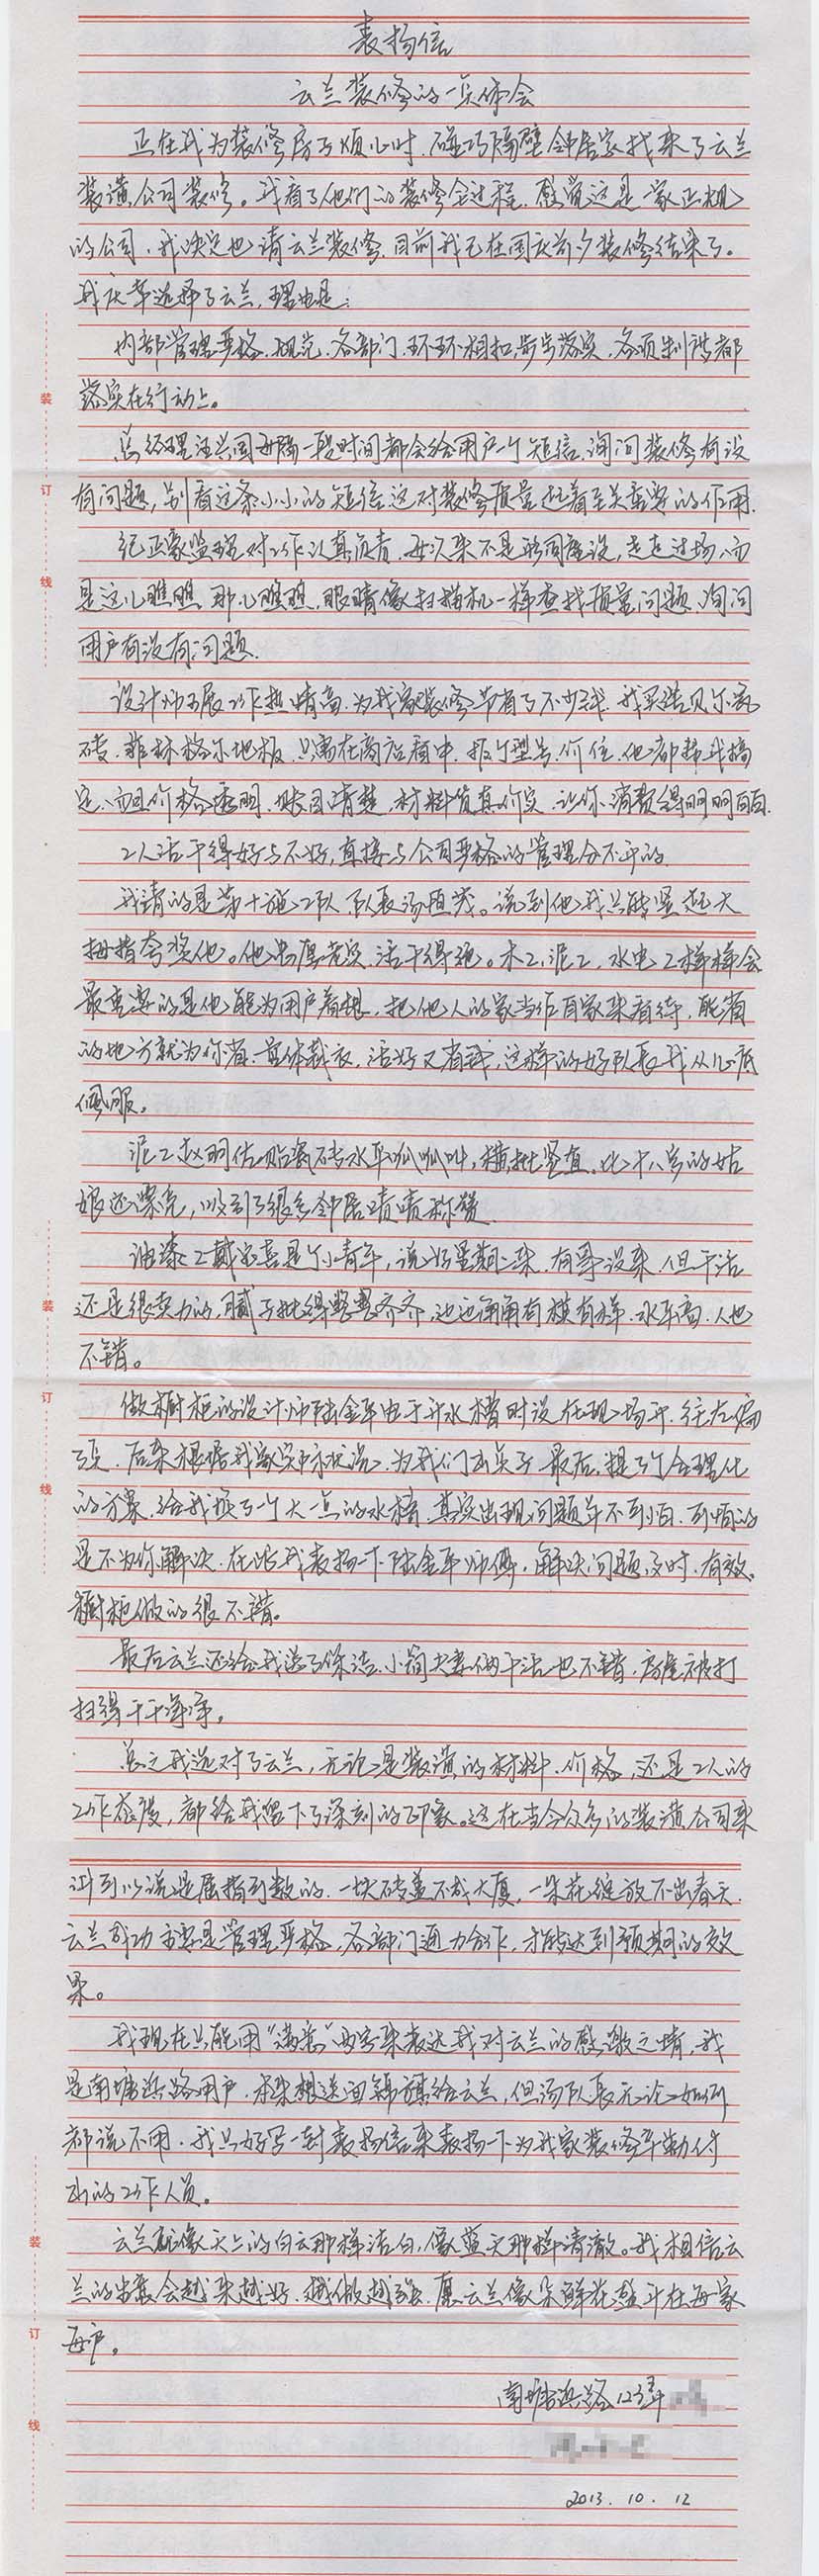 表扬信
云兰装修的一点体会
正在我为装修房子烦心时,碰巧隔壁邻居家找来了云兰
装潢公司装修。我看了他们的装修全过程,感觉这是一家正规
的公司,我决定也请云兰装修,目前我已在国庆前夕装修结束了。
我庆幸选择了云兰,理由是:
内部管理严格、规范,各部门环环相扣,步步落实,各项制度都
落实在行动上。
总经理汪兰国每隔一段时间都会给用户一个短信,询问装修有没
有问题,别看这条小小的短信,这对装修质量起着至关重要的作用。
纪正家监理对工作认真负责,每次来不是形同虚设,走走过场,而
是这儿瞧瞧,那儿瞧瞧,眼睛像扫描机一样查找质量问题,询问
用户有没有问题。
设计师 展工作热情高,为我家装修节省了不少钱,我买诺贝尔瓷
砖、菲林格尔地板,只需在商店看中,报个型号、价位,他都帮我搞
定,而且价格透明,账目清楚,材料货真价实,让你消费得明明白白。
工人活干得好与不好,直接与公司严格的管理分不开的。
我请的是第十施工队,队长汤恒茂。说到他我只能竖起大
拇指夸奖他。他忠厚老实,活干得绝。木工、泥工、水电工样样会
最重要的是他能为用户着想,把他人的家当作自家来看待,能省
的地方就为你省,量体裁衣,活好又省钱,这样的好队长我从心底
佩服。
泥工赵明 贴瓷砖水平呱呱叫,横平竖直,比十八岁的姑
娘还漂亮,吸引了很多邻居啧啧称赞。
油漆工戴 喜是个小青年,说好星期二来,有事没来,但干活
还是很卖力的,腻子批得整整齐齐,边边角角有模有样,水平高,人也
不错。
做橱柜的设计师陆金平由于开水槽时没在现场开,往左偏
了点,后来根据我家实际状况,为我们出点子,最后,提了个合理化
的方案,给我换了一个大一点的水槽,其实出现问题并不可怕,可怕的
是不为你解决,在此我表扬一下陆金平师傅,解决问题及时、有效,
橱柜做的很不错。
最后云兰还给我送了保洁,小简夫妻俩干活也不错,房屋被打
扫得干干净净。
总之我选对了云兰,无论是装潢的材料、价格,还是工人的
工作态度,都给我留下了深刻的印象。这在当今众多的装潢公司来
讲可以说是屈指可数的,一块砖盖不成大厦,一朵花绽放不出春天,
云兰成功主要是管理严格,各部门通力合作,才能达到预期的效
果。
我现在只能用“满意”两字来表达我对云兰的感激之情,我
是南塘浜路用户,本来想送面锦旗给云兰,但汤队长无论如何
都说不用,我只好写一封表扬信来表扬一下为我家装修辛勤付
出的工作人员。
云兰就像天上的白云那样洁白,像蓝天那样清澈。我相信云
兰的发展会越来越好,越做越强,愿云兰像朵鲜花盛开在每家
每户。
南塘浜路123弄
2013.10.12
装
订
线
装
订
线
装
订
线